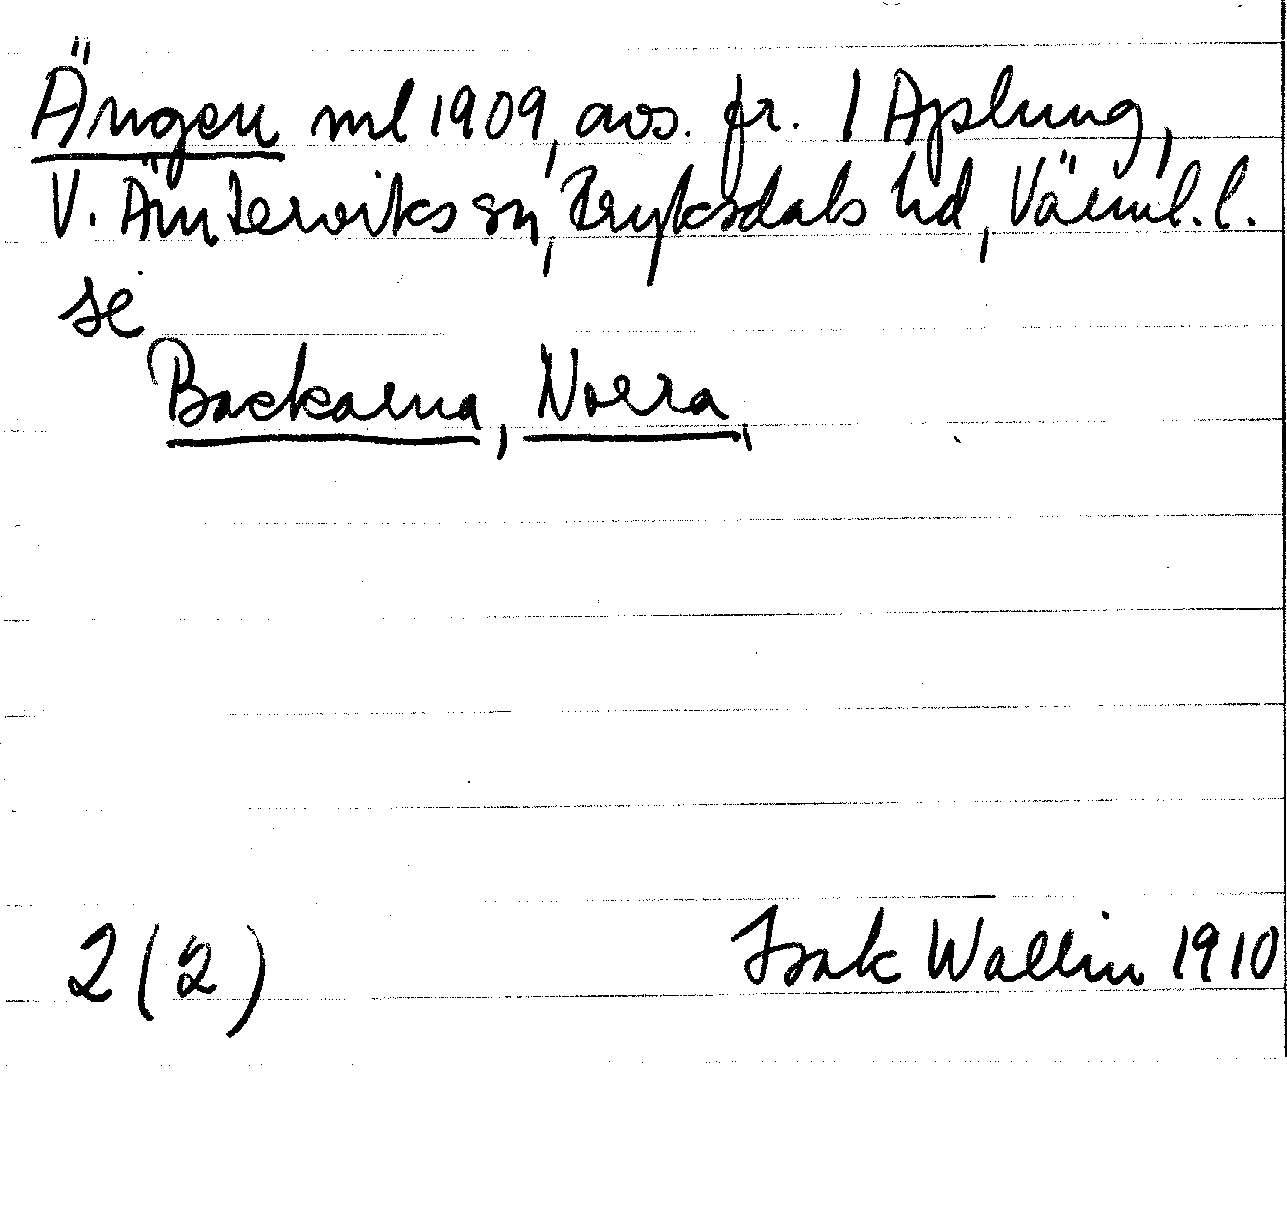 Ängen ml 1909, avs. fr. 1 Aplung,
V. Ämterviks sn, Fryksdals hd, Värml. l.
se
Backarna, Norra.
2(2)
Isak Wallin 1910